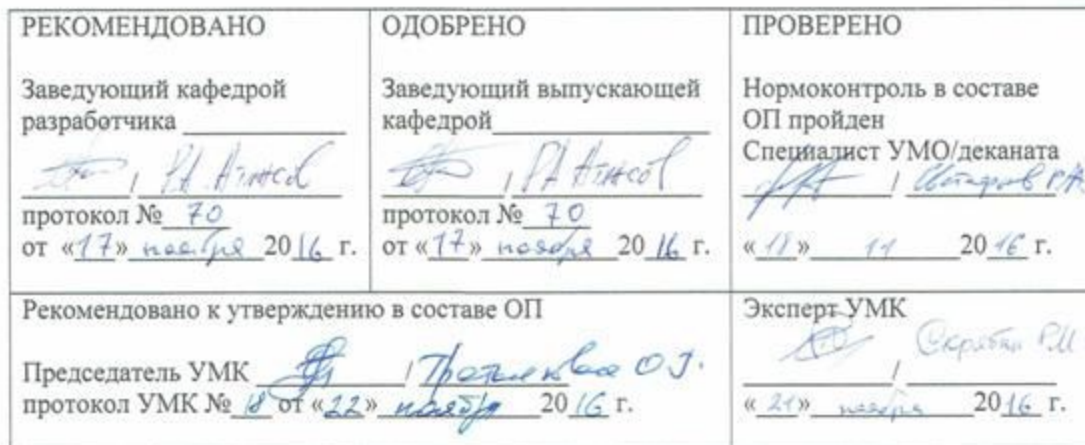 РЕКОМЕНДОВАНО
Заведующий кафедрой
разработчика
/
протокол № 70
от «17» ноября 2016 г.
ОДОБРЕНО
Заведующий выпускающей
кафедрой
/
протокол № 70
от «17» ноября 2016 г.
ПРОВЕРЕНО
Нормоконтроль в составе
ОП пройден
Специалист УМО/деканата
/
« » 11 2016 г.
Рекомендовано к утверждению в составе ОП
Председатель УМК / О.
протокол УМК № 18 от «22» ноября 2016 г.
Эксперт УМК
Скрябин Р.М.
/
«21» ноября 2016 г.